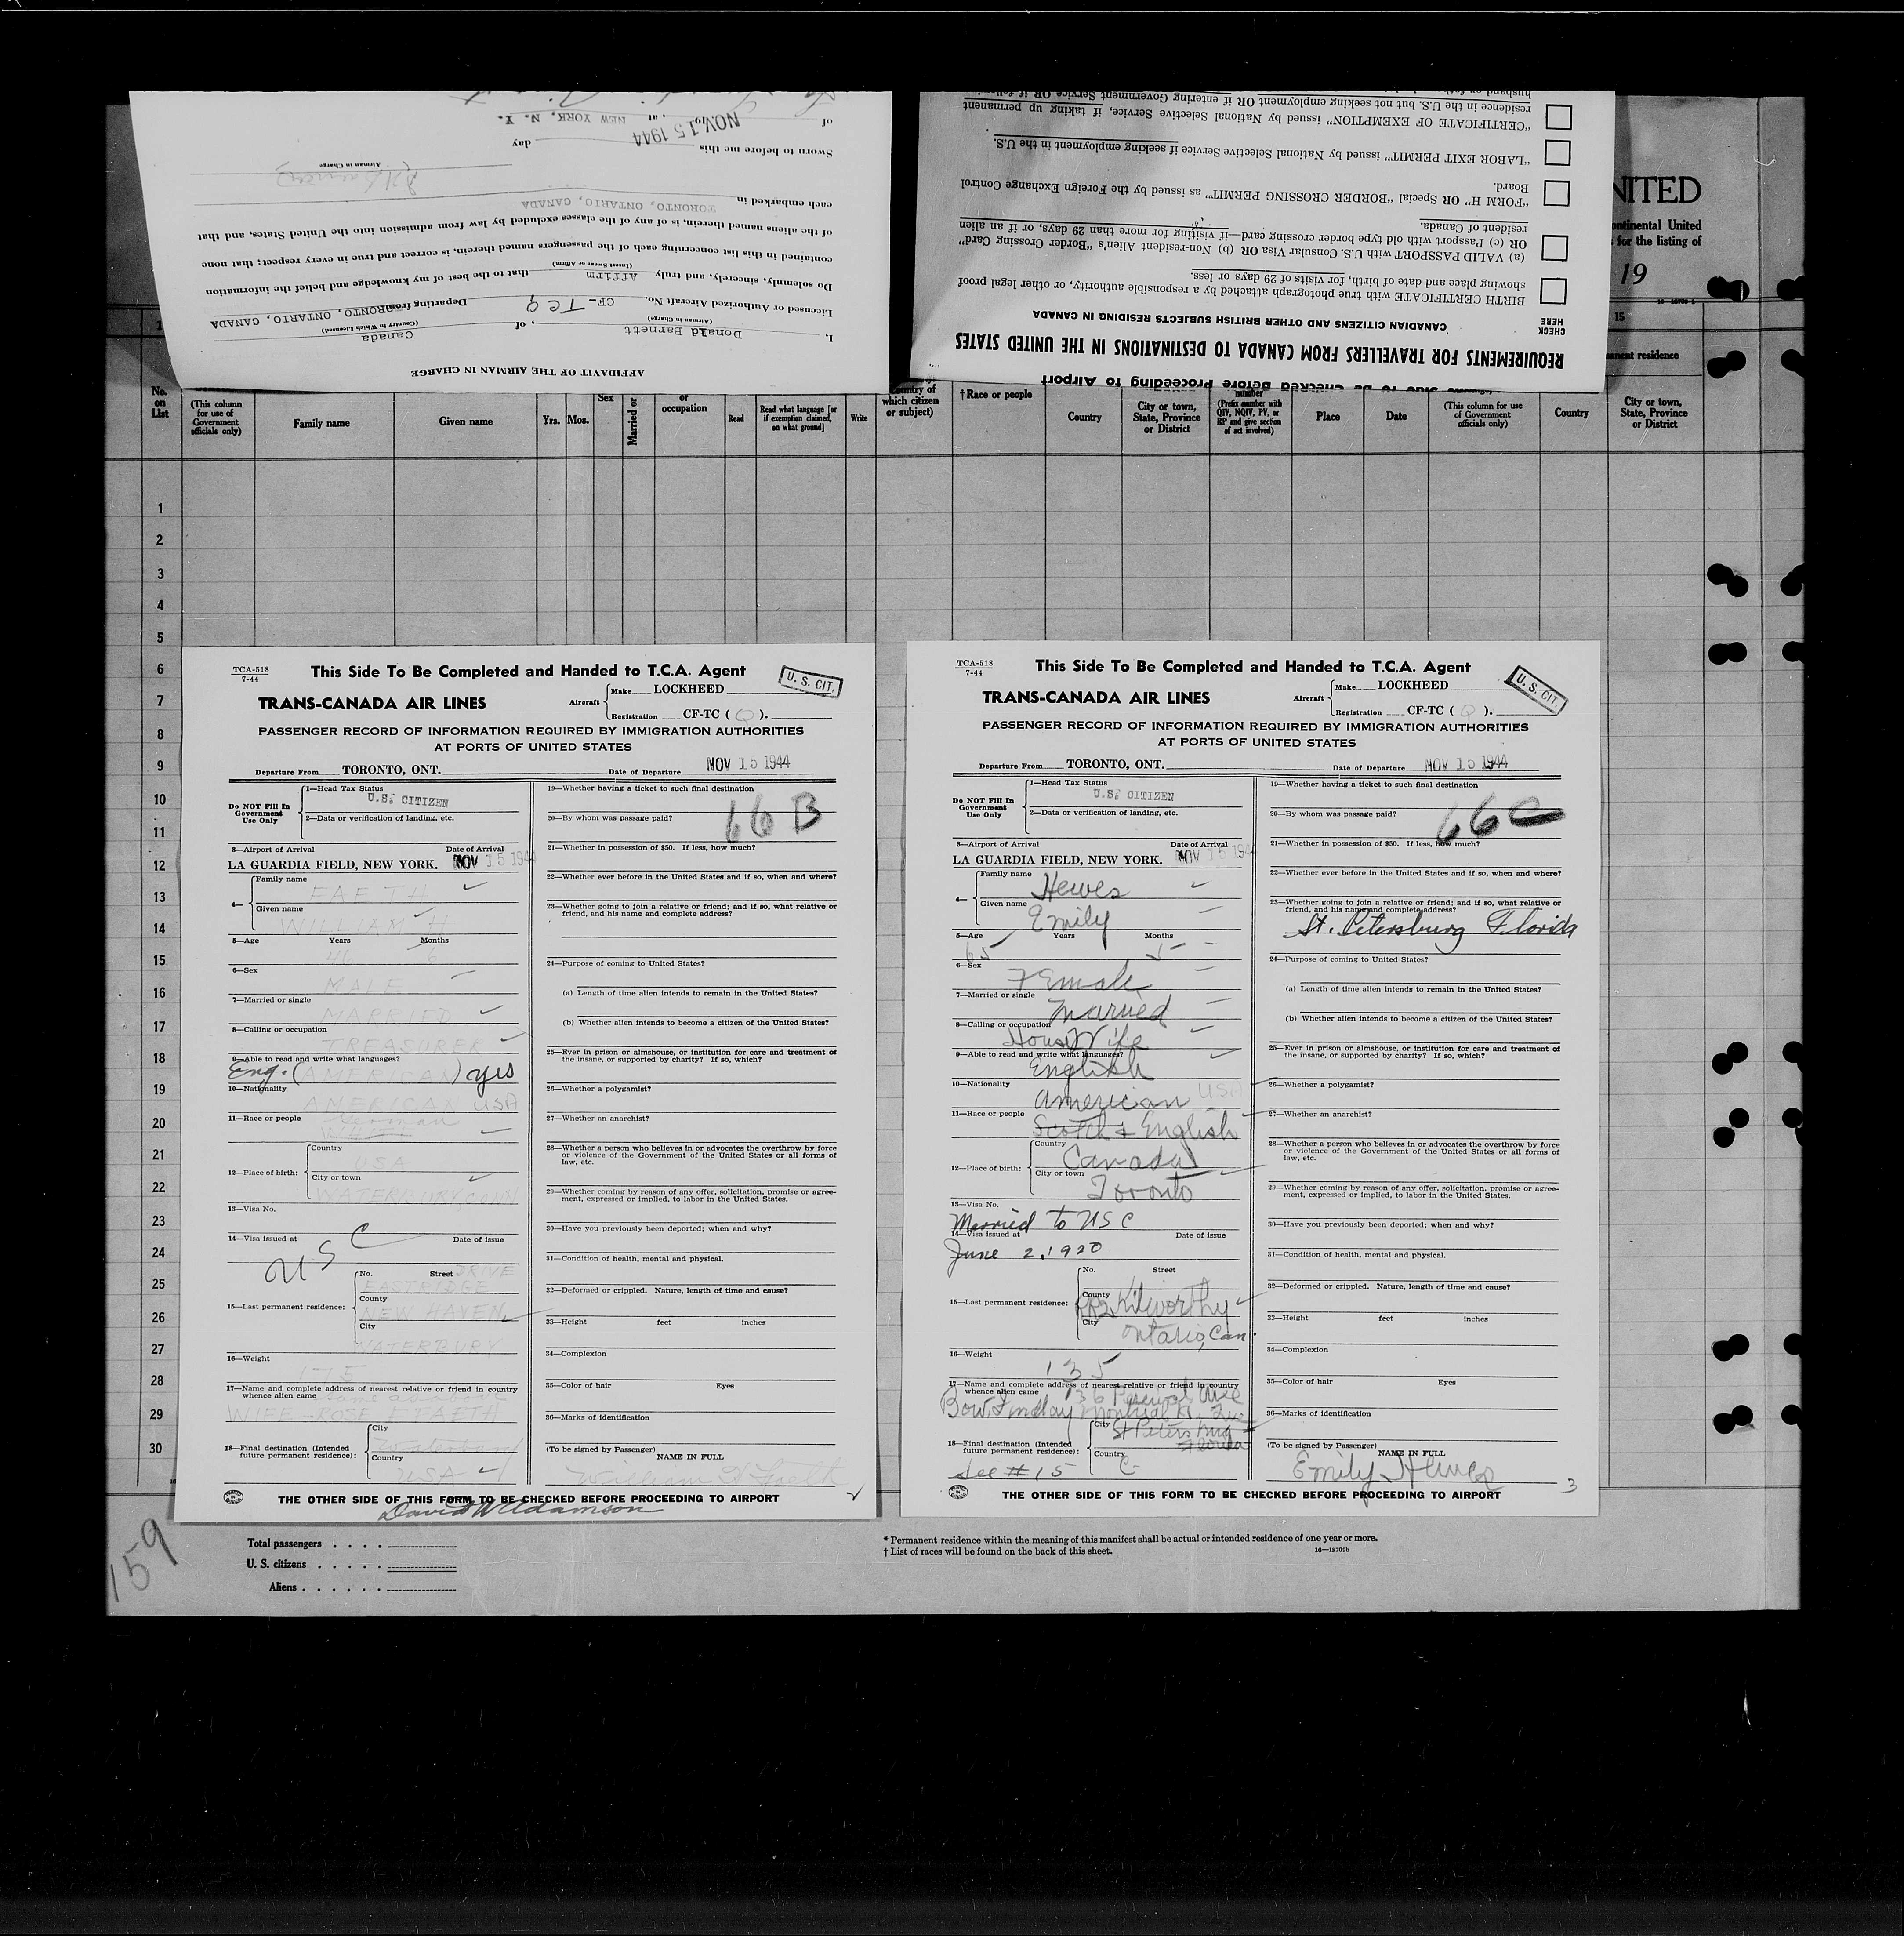 AFFIDAVIT OF THE AIRMAN IN CHARGE
I, Donald Barnett, of Canada
(Airman in Charge) (Country in Which Licensed)
Licensed or Authorized Aircraft No. CF-TCQ Departing from TORONTO, ONTARIO, CANADA
Do solemnly, sincerely, and truly Affirm that to the best of my knowledge and belief the information
(Insert Swear or Affirm)
contained in this list concerning each of the passengers named therein, is correct and true in every respect; that none
of the aliens named therein, is of any of the classes excluded by law from admission into the United States, and that
each embarked in TORONTO, ONTARIO, CANADA
Airman in Charge
Sworn to before me this day
of NOV 15 1944 19 , at NEW YORK, N. Y.
Checked Before Proceeding to Airport
REQUIREMENTS FOR TRAVELLERS FROM CANADA TO DESTINATIONS IN THE UNITED STATES
CHECK
HERE
CANADIAN CITIZENS AND OTHER BRITISH SUBJECTS RESIDING IN CANADA
BIRTH CERTIFICATE with true photograph attached by a responsible authority, or other legal proof
showing place and date of birth, for visits of 29 days or less.
(a) VALID PASSPORT with U.S. Consular Visa OR (b) Non-resident Alien's "Border Crossing Card"
OR (c) Passport with old type border crossing card—if visiting for more than 29 days, or if an alien
resident of Canada.
"FORM H" OR Special "BORDER CROSSING PERMIT" as issued by the Foreign Exchange Control
Board.
"LABOR EXIT PERMIT" issued by National Selective Service if seeking employment in the U.S.
"CERTIFICATE OF EXEMPTION" issued by National Selective Service, if taking up permanent
residence in the U.S. but not seeking employment OR if entering Government Service OR if
NITED
ontinental United
for the listing of
19
15
anent residence
No.
on
List
(This column
for use of
Government
officials only)
Family name
Given name
Yrs. Mos.
Sex
Married or
or
occupation
Read
Read what language [or
if exemption claimed,
on what ground]
Write
country of
which citizen
or subject)
† Race or people
Country
City or town,
State, Province
or District
number
(Prefix number with
QIV, NQIV, PV, or
RP and give section
of act involved)
Place
Date
(This column for use
of Government
officials only)
Country
City or town,
State, Province
or District
1
2
3
4
5
6
7
8
9
10
11
12
13
14
15
16
17
18
19
20
21
22
23
24
25
26
27
28
29
30
TCA-518
7-44
This Side To Be Completed and Handed to T.C.A. Agent
U. S. CIT.
TRANS-CANADA AIR LINES
Aircraft
Make LOCKHEED
Registration CF-TC ( Q ).
PASSENGER RECORD OF INFORMATION REQUIRED BY IMMIGRATION AUTHORITIES
AT PORTS OF UNITED STATES
Departure From TORONTO, ONT. Date of Departure NOV 15 1944
Do NOT Fill In
Government
Use Only
1—Head Tax Status
U.S. CITIZEN
2—Data or verification of landing, etc.
3—Airport of Arrival Date of Arrival
LA GUARDIA FIELD, NEW YORK. NOV 15 1944
4—
Family name
FAETH
Given name
WILLIAM H
5—Age Years Months
46 6
6—Sex
MALE
7—Married or single
MARRIED
8—Calling or occupation
TREASURER
9—Able to read and write what languages?
Eng. (AMERICAN) yes
10—Nationality
AMERICAN USA
11—Race or people
German
WHITE
12—Place of birth:
Country
USA
City or town
WATERBURY CONN
13—Visa No.
14—Visa issued at Date of issue
U S C
15—Last permanent residence:
No. Street DRIVE
EASTRIDGE
County
NEW HAVEN
City
WATERBURY
16—Weight
175
17—Name and complete address of nearest relative or friend in country
whence alien came
WIFE ROSE E FAETH
18—Final destination (Intended
future permanent residence):
City
Waterbury
Country
USA
19—Whether having a ticket to such final destination
66 B
20—By whom was passage paid?
21—Whether in possession of $50. If less, how much?
22—Whether ever before in the United States and if so, when and where?
23—Whether going to join a relative or friend; and if so, what relative or
friend, and his name and complete address?
24—Purpose of coming to United States?
(a) Length of time alien intends to remain in the United States?
(b) Whether alien intends to become a citizen of the United States?
25—Ever in prison or almshouse, or institution for care and treatment of
the insane, or supported by charity? If so, which?
26—Whether a polygamist?
27—Whether an anarchist?
28—Whether a person who believes in or advocates the overthrow by force
or violence of the Government of the United States or all forms of
law, etc.
29—Whether coming by reason of any offer, solicitation, promise or agree-
ment, expressed or implied, to labor in the United States.
30—Have you previously been deported; when and why?
31—Condition of health, mental and physical.
32—Deformed or crippled. Nature, length of time and cause?
33—Height feet inches
34—Complexion
35—Color of hair Eyes
36—Marks of identification
(To be signed by Passenger)
NAME IN FULL
William H Faeth
THE OTHER SIDE OF THIS FORM TO BE CHECKED BEFORE PROCEEDING TO AIRPORT
David W Adamson
TCA-518
7-44
This Side To Be Completed and Handed to T.C.A. Agent
U. S. CIT.
TRANS-CANADA AIR LINES
Aircraft
Make LOCKHEED
Registration CF-TC ( Q ).
PASSENGER RECORD OF INFORMATION REQUIRED BY IMMIGRATION AUTHORITIES
AT PORTS OF UNITED STATES
Departure From TORONTO, ONT. Date of Departure NOV 15 1944
Do NOT Fill In
Government
Use Only
1—Head Tax Status
U.S. CITIZEN
2—Data or verification of landing, etc.
3—Airport of Arrival Date of Arrival
LA GUARDIA FIELD, NEW YORK. NOV 15 194
4—
Family name
Hewes
Given name
Emily
5—Age Years Months
65 5
6—Sex
Female
7—Married or single
Married
8—Calling or occupation
HouseWife
9—Able to read and write what languages?
English
10—Nationality
American USA
11—Race or people
Scotch & English
12—Place of birth:
Country
Canada
City or town
Toronto
13—Visa No.
Married to USC
14—Visa issued at Date of issue
June 2, 1920
15—Last permanent residence:
No. Street
County
RR2 Kilworthy
City
Ontario, Can.
16—Weight
135
17—Name and complete address of nearest relative or friend in country
whence alien came 136 Percival Ave
Findlay Montreal
18—Final destination (Intended
future permanent residence):
See # 15
City
St Petersburg
Florida
Country
19—Whether having a ticket to such final destination
66 C
20—By whom was passage paid?
21—Whether in possession of $50. If less, how much?
22—Whether ever before in the United States and if so, when and where?
23—Whether going to join a relative or friend; and if so, what relative or
friend, and his name and complete address?
St. Petersburg Florida
24—Purpose of coming to United States?
(a) Length of time alien intends to remain in the United States?
(b) Whether alien intends to become a citizen of the United States?
25—Ever in prison or almshouse, or institution for care and treatment of
the insane, or supported by charity? If so, which?
26—Whether a polygamist?
27—Whether an anarchist?
28—Whether a person who believes in or advocates the overthrow by force
or violence of the Government of the United States or all forms of
law, etc.
29—Whether coming by reason of any offer, solicitation, promise or agree-
ment, expressed or implied, to labor in the United States.
30—Have you previously been deported; when and why?
31—Condition of health, mental and physical.
32—Deformed or crippled. Nature, length of time and cause?
33—Height feet inches
34—Complexion
35—Color of hair Eyes
36—Marks of identification
(To be signed by Passenger)
NAME IN FULL
Emily Hewes
3
THE OTHER SIDE OF THIS FORM TO BE CHECKED BEFORE PROCEEDING TO AIRPORT
159
Total passengers . . . .
U. S. citizens . . . . .
Aliens . . . . . .
* Permanent residence within the meaning of this manifest shall be actual or intended residence of one year or more.
† List of races will be found on the back of this sheet.
16—18709b